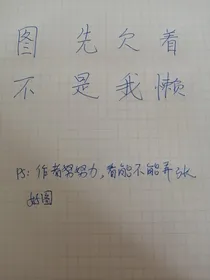 图先欠着
不是我懒
PS：作者努努力，看能不能弄张
好图